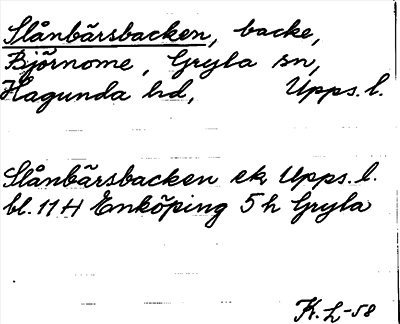 Slånbärsbacken, backe,
Björnome, Gryta sn,
Hagunda hd, Upps. l.
Slånbärsbacken ek Upps. l.
bl. 11 H Enköping 5 h Gryta
K. L-58